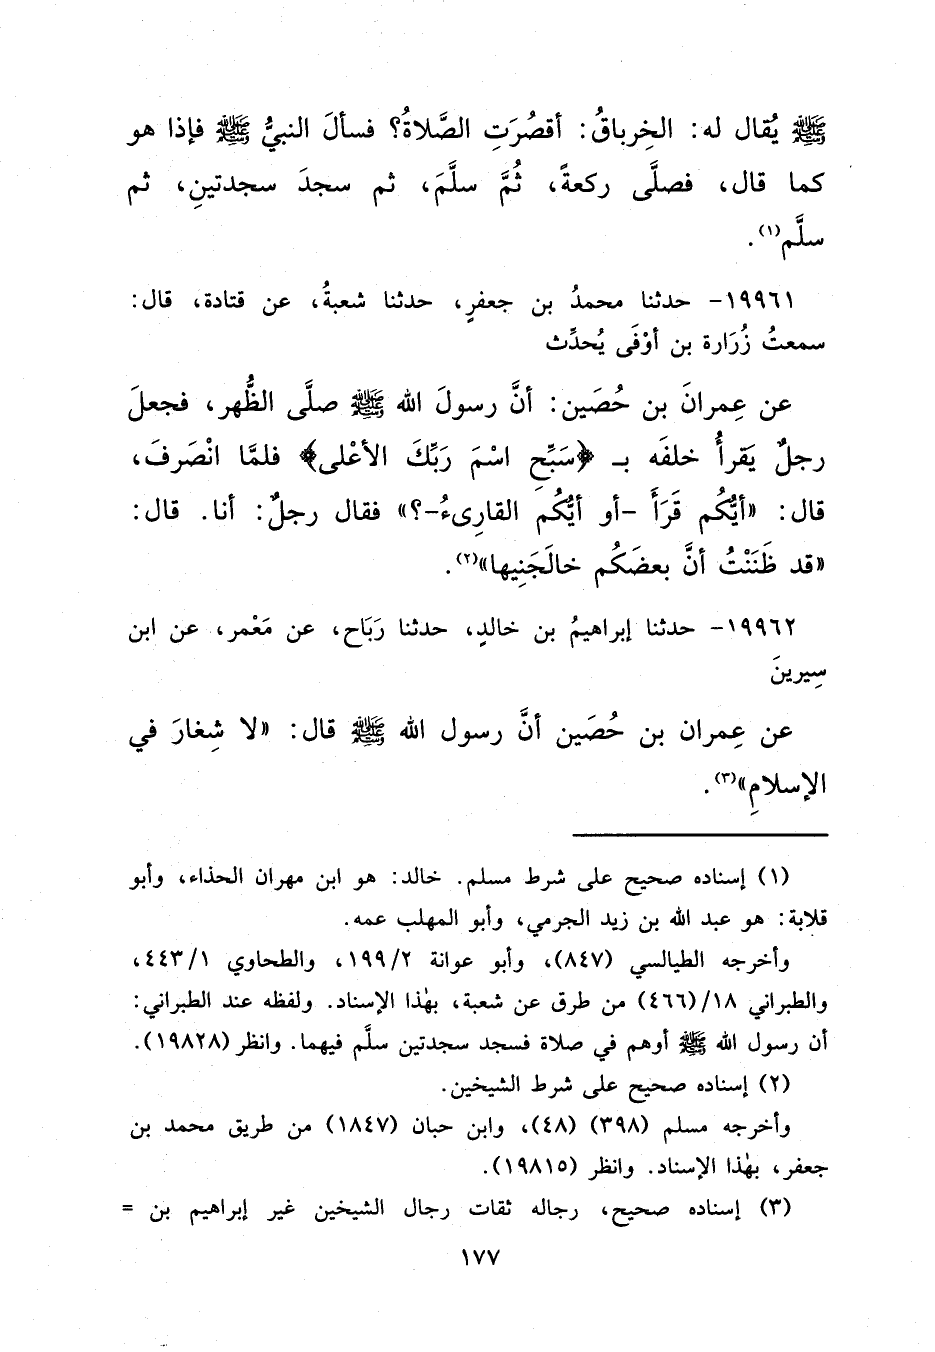 ﷺ يُقال له: الخِرباقُ: أقصُرَتِ الصَّلاةُ؟ فسألَ النبيُّ ﷺ فإذا هو
كما قال، فصلَّى ركعةً، ثُمَّ سلَّمَ، ثم سجدَ سجدتينِ، ثم
سلَّم(١).
١٩٩٦١- حدثنا محمدُ بن جعفرٍ، حدثنا شعبةُ، عن قتادة، قال:
سمعتُ زُرَارة بن أوْفَى يُحدِّث
عن عِمرانَ بن حُصَين: أنَّ رسولَ الله ﷺ صلَّى الظُّهر، فجعلَ
رجلٌ يَقرأُ خلفَه بـ ﴿سَبِّحِ اسْمَ رَبِّكَ الأعْلى﴾ فلمَّا انْصَرفَ،
قال: «أيُّكُم قَرَأَ -أو أيُّكُم القارِىءُ-؟» فقال رجلٌ: أنا. قال:
«قد ظَنَنْتُ أنَّ بعضَكُم خالَجَنِيها»(٢).
١٩٩٦٢- حدثنا إبراهيمُ بن خالدٍ، حدثنا رَبَاح، عن مَعْمر، عن ابن
سِيرينَ
عن عِمران بن حُصَين أنَّ رسول الله ﷺ قال: «لا شِغارَ في
الإسلامِ»(٣).
(١) إسناده صحيح على شرط مسلم. خالد: هو ابن مهران الحذاء، وأبو
قلابة: هو عبد الله بن زيد الجرمي، وأبو المهلب عمه.
وأخرجه الطيالسي (٨٤٧)، وأبو عوانة ١٩٩/٢، والطحاوي ٤٤٣/١،
والطبراني ١٨/(٤٦٦) من طرق عن شعبة، بهٰذا الإسناد. ولفظه عند الطبراني:
أن رسول الله ﷺ أوهم في صلاة فسجد سجدتين سلَّم فيهما. وانظر (١٩٨٢٨).
(٢) إسناده صحيح على شرط الشيخين.
وأخرجه مسلم (٣٩٨) (٤٨)، وابن حبان (١٨٤٧) من طريق محمد بن
جعفر، بهٰذا الإسناد. وانظر (١٩٨١٥).
(٣) إسناده صحيح، رجاله ثقات رجال الشيخين غير إبراهيم بن =
١٧٧